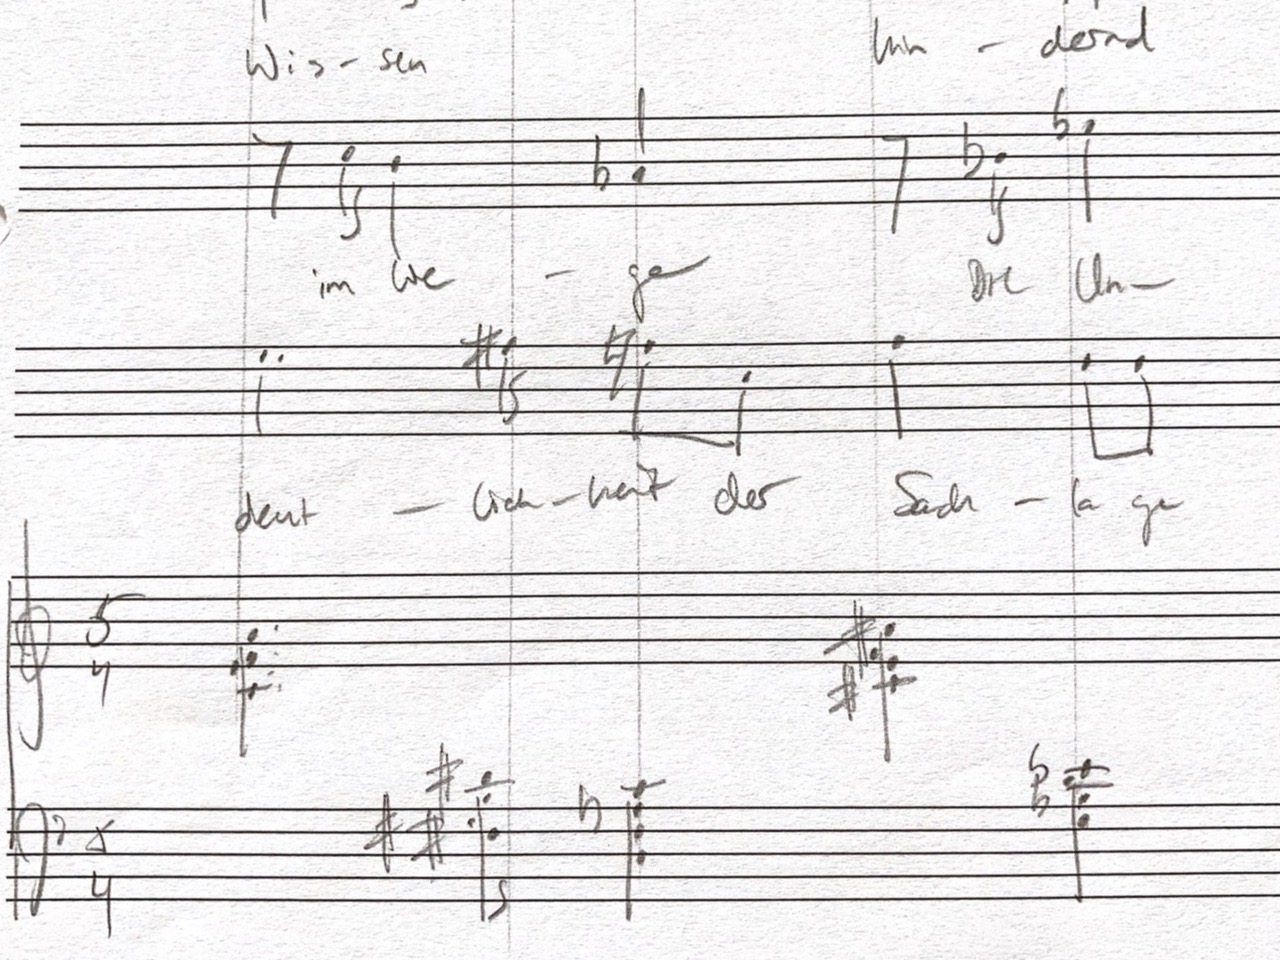 Wis-sen hin-dernd
im We-ge Die Un-
deut-lich-keit der Sach-la ge
5
4
5
4